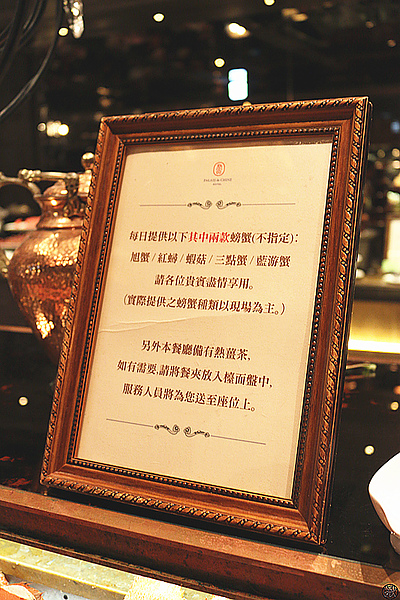 PALAIS de CHINE
HOTEL
每日提供以下其中兩款螃蟹(不指定)：
旭蟹/紅蟳/蝦菇/三點蟹/藍游蟹
請各位貴賓盡情享用。
(實際提供之螃蟹種類以現場為主。)
另外本餐廳備有熱薑茶，
如有需要,請將餐夾放入檯面盤中，
服務人員將為您送至座位上。